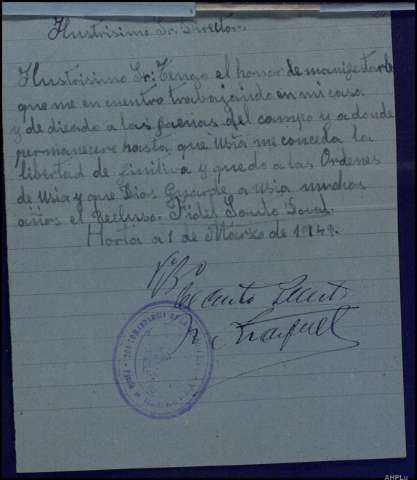 Ilustrisimo Sr. Director.
Ilustrisimo Sr: Tengo el honor de manifestarle
que me en cuentro trabajando en mi casa
y de dicado a las faenas del campo y a donde
permanecere hasta que usia me conceda la
libertad de finitiva y quedo a las Ordenes
de usia y que Dios Guarde a usia muchos
años el Recluso. Fidel
a 1 de Marzo de 1942.
VºBº
AHPLu